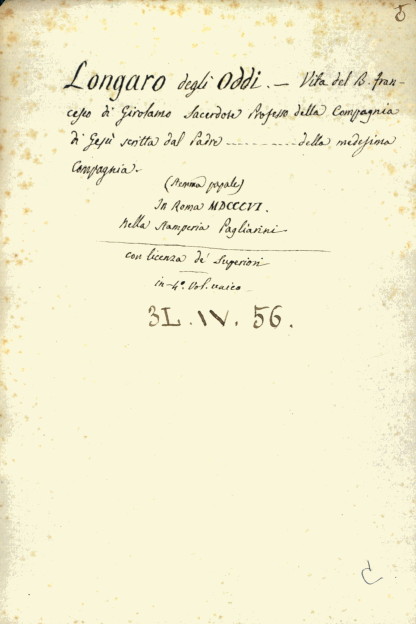 5
Longaro degli Oddi. — Vita del B. fran-
cesco di Girolamo Sacerdote Professo della Compagnia
di Gesù scritta dal Padre ---------- della medesima
Compagnia.
(stemma papale)
In Roma MDCCCVI.
Nella Stamperia Pagliarini
con licenza de' Superiori
in-4°. Vol. unico
3L. IV. 56.
C